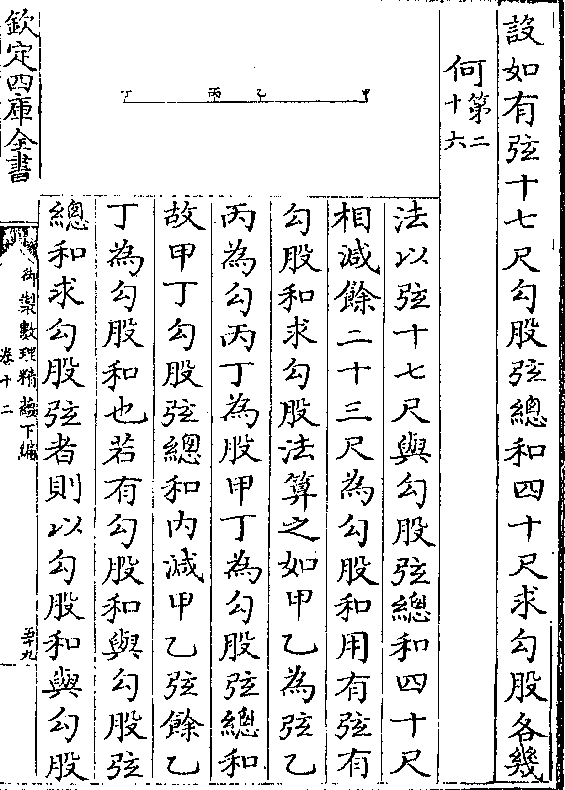 設如有弦十七尺勾股弦總和四十尺求勾股各幾
何第二
十六
丁 丙 乙 甲
法以弦十七尺與勾股弦總和四十尺
相減餘二十三尺為勾股和用有弦有
勾股和求勾股法算之如甲乙為弦乙
丙為勾丙丁為股甲丁為勾股弦總和
故甲丁勾股弦總和内減甲乙弦餘乙
丁為勾股和也若有勾股和與勾股弦
總和求勾股弦者則以勾股和與勾股
欽定四庫全書
御製數理精藴下編
卷十二